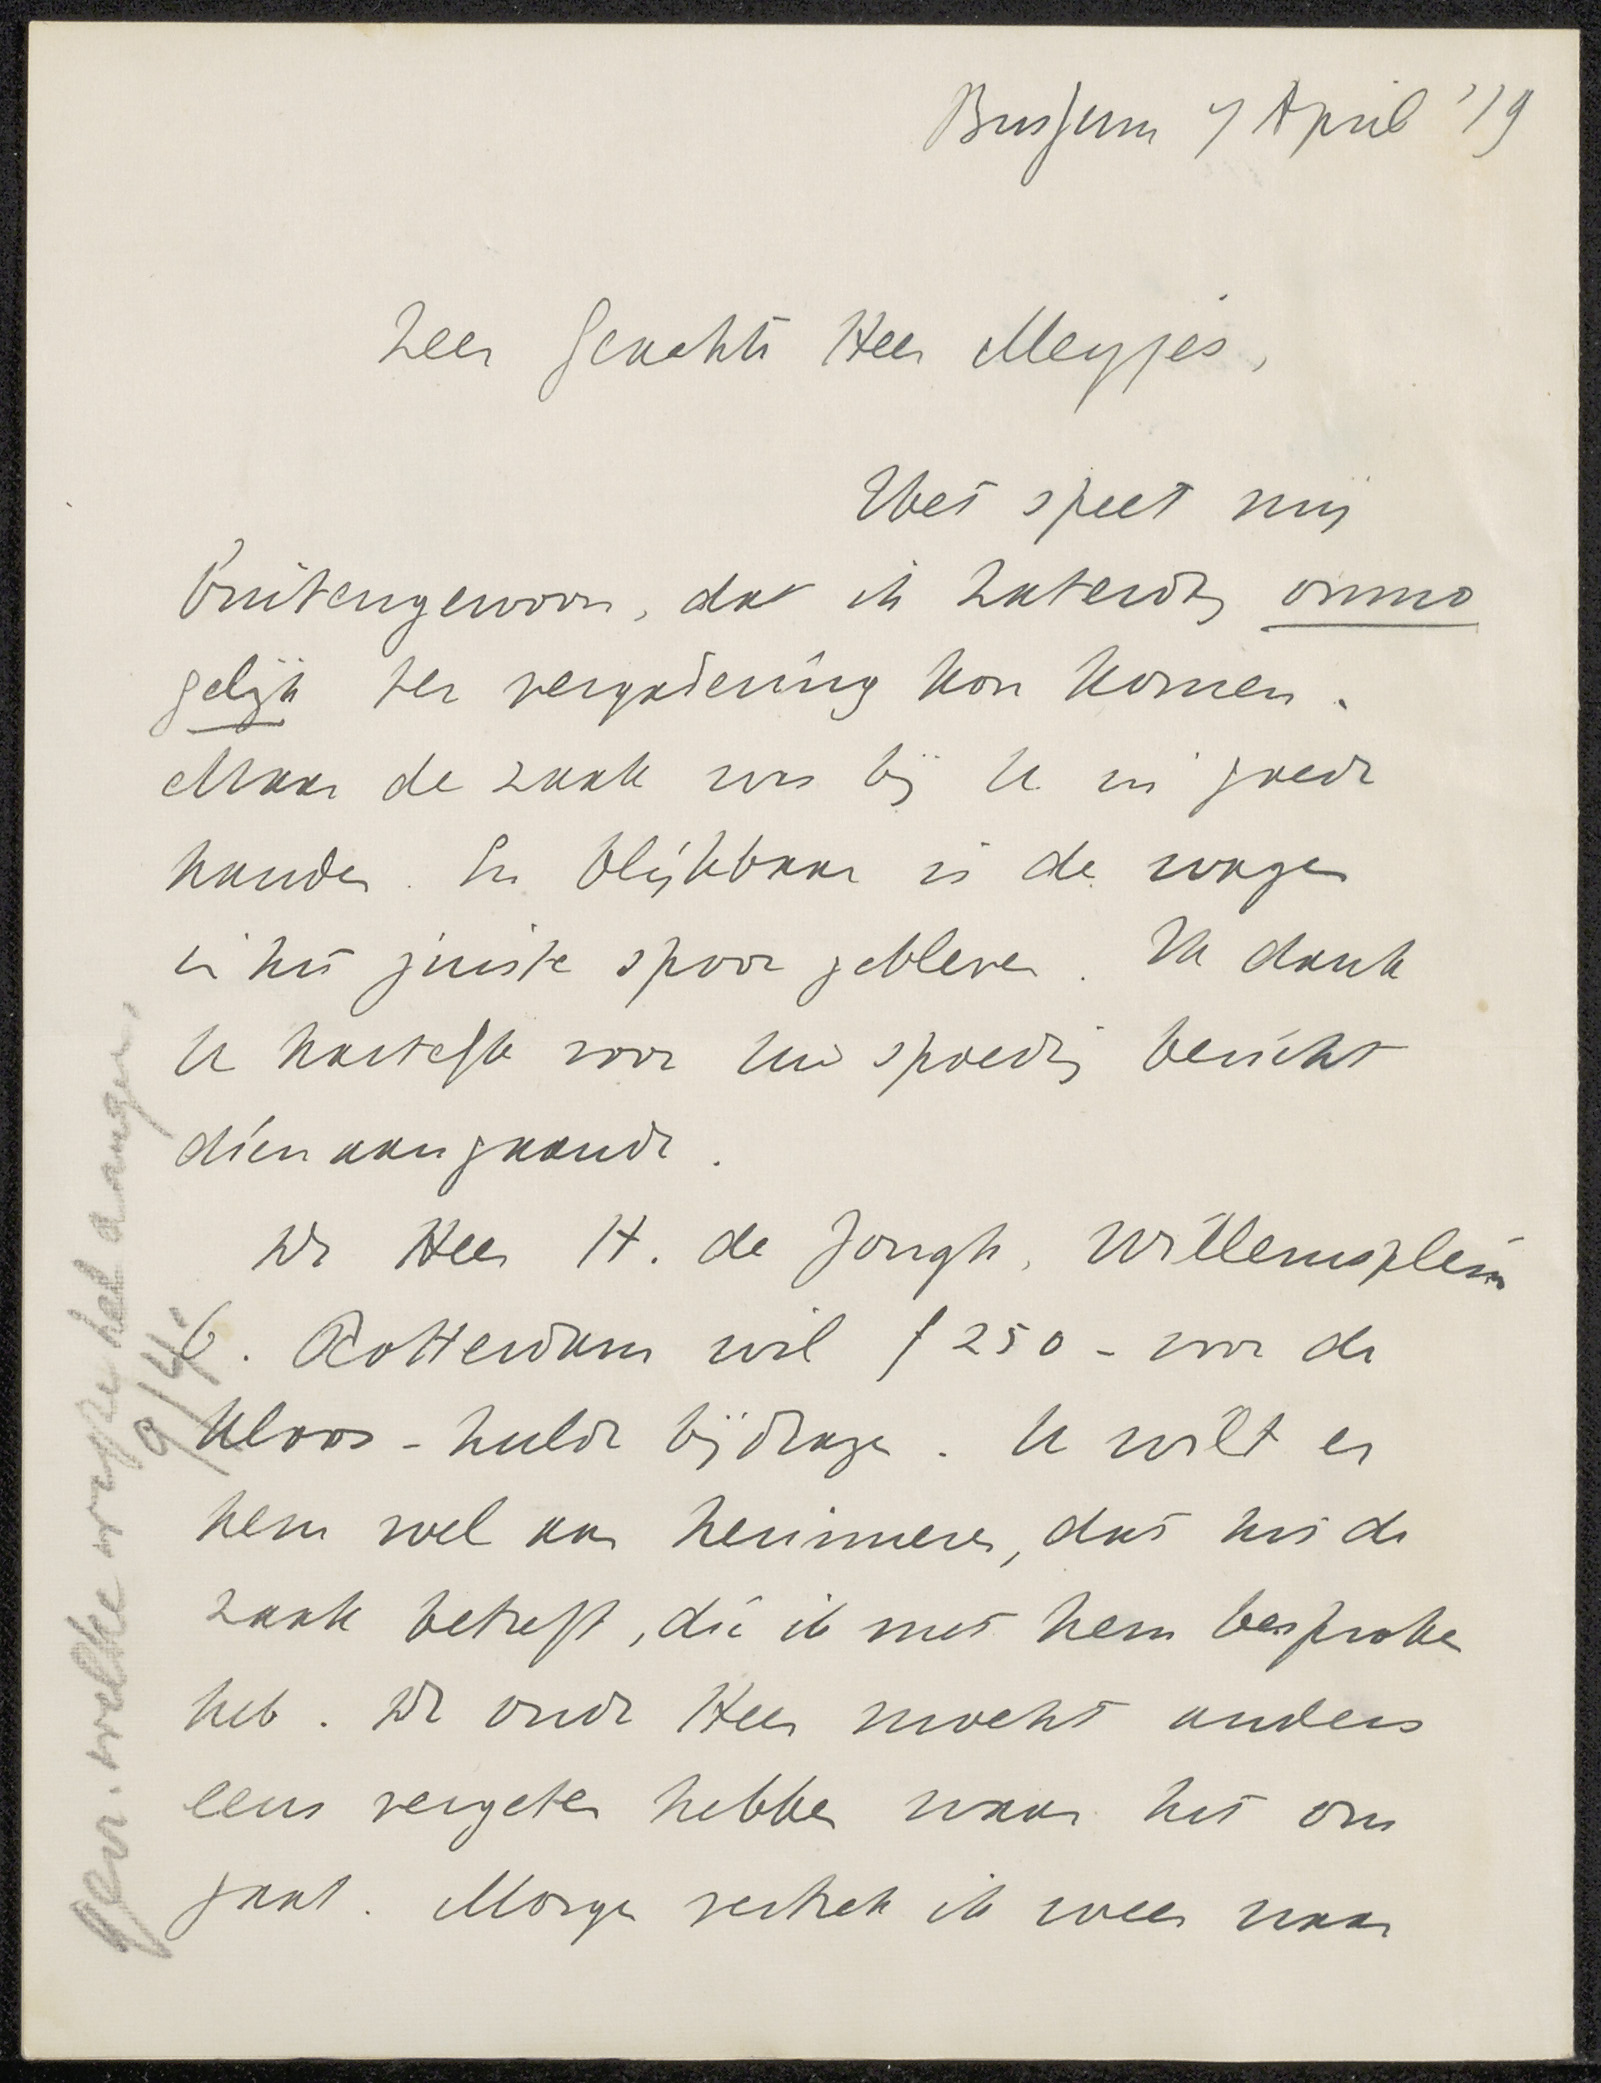 Bussum 7 April '19
Zeer Geachte Heer Meyjes,
Het speet mij
buitengewoon, dat ik Zaterdag onmo
gelijk ter vergadering kon komen.
Maar de zaak was bij U in goede
handen. En blijkbaar is de wagen
in het juiste spoor gebleven. Ik dank
U hartelijk voor Uw spoedig bericht
dienaangaande.
De Heer H. de Jongh, Willemsplein
6. Rotterdam wil f 250 - voor de
Kloos - hulde bijdragen. U wilt er
hem wel aan herinneren, dat het de
zaak betreft, die ik met hem besproken
heb. De oude Heer mocht anders
eens vergeten hebben waar het om
gaat. Morgen vertrek ik weer naar
welke wijze het
9/4.